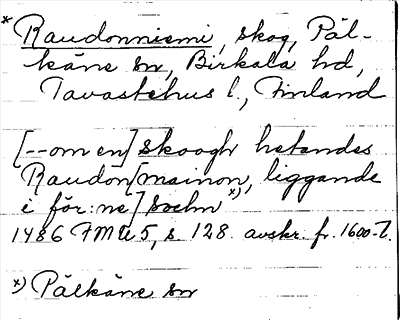 * Raudonniemi, skog, Päl-
käne sn, Birkala hd,
Tavastehus l., Finland
[--om en] skoogh hetandes
Raudon[mainon, liggande
i för:ne] sochn x)
1486 FMU 5, s. 128. avskr. fr. 1600-t.
x) Pälkäne sn